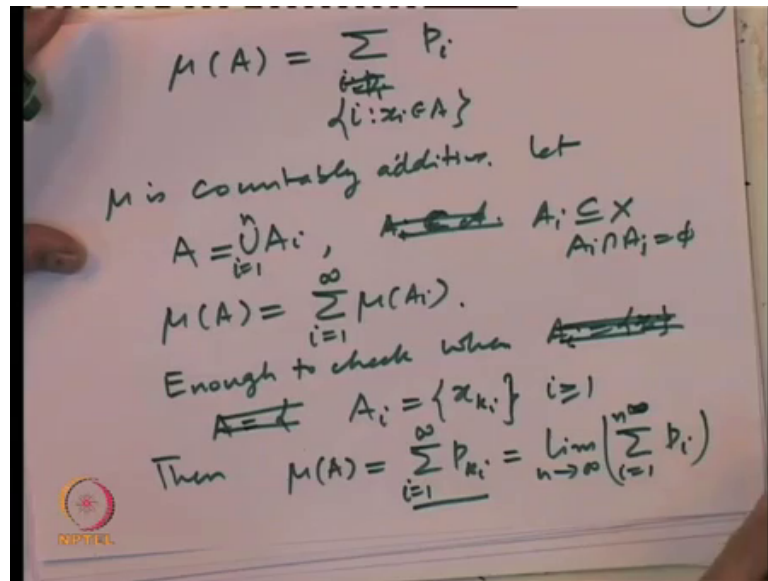 μ(A) = Σ p_i
{i : x_i ∈ A}
μ is countably additive. Let
A = ⋃_{i=1}^{n} A_i , A_i ⊆ X
A_i ∩ A_j = φ
μ(A) = Σ_{i=1}^{∞} μ(A_i).
Enough to check when
A_i = {x_{k_i}} i ≥ 1
Then μ(A) = Σ_{i=1}^{∞} p_{k_i} = lim_{n→∞} (Σ_{i=1}^{n} p_i)
NPTEL